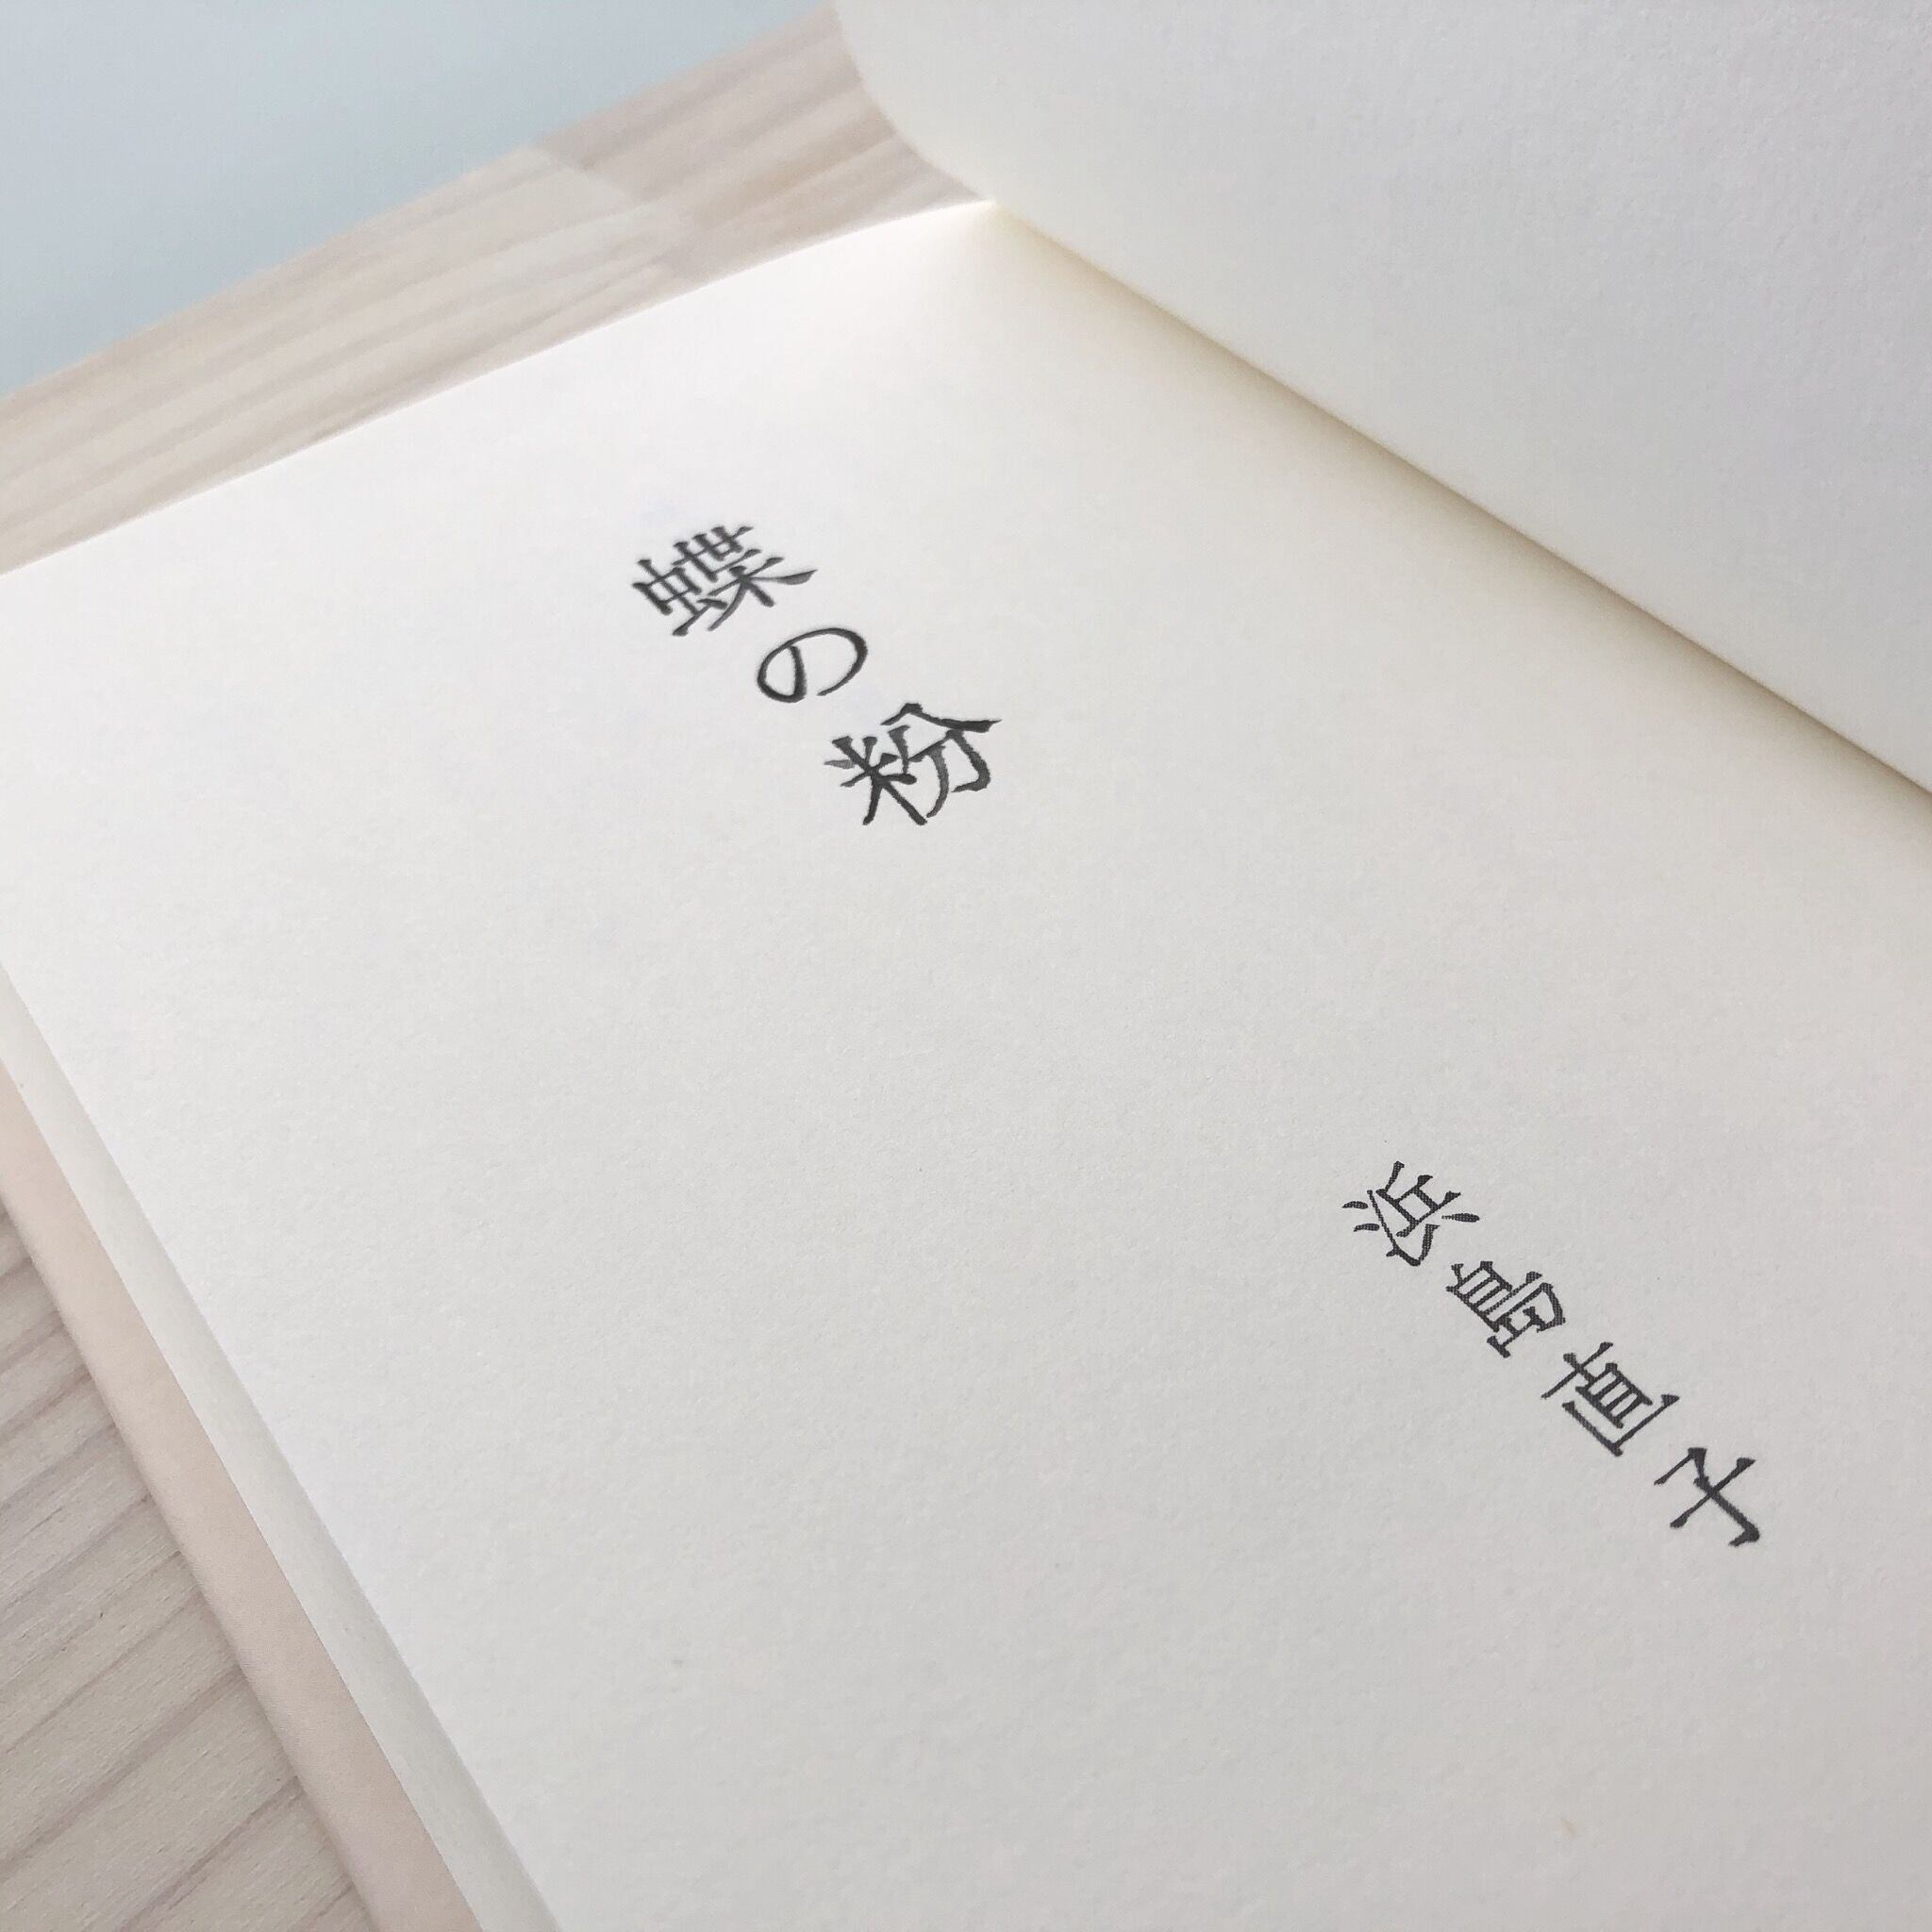 蝶の粉
浜島直子